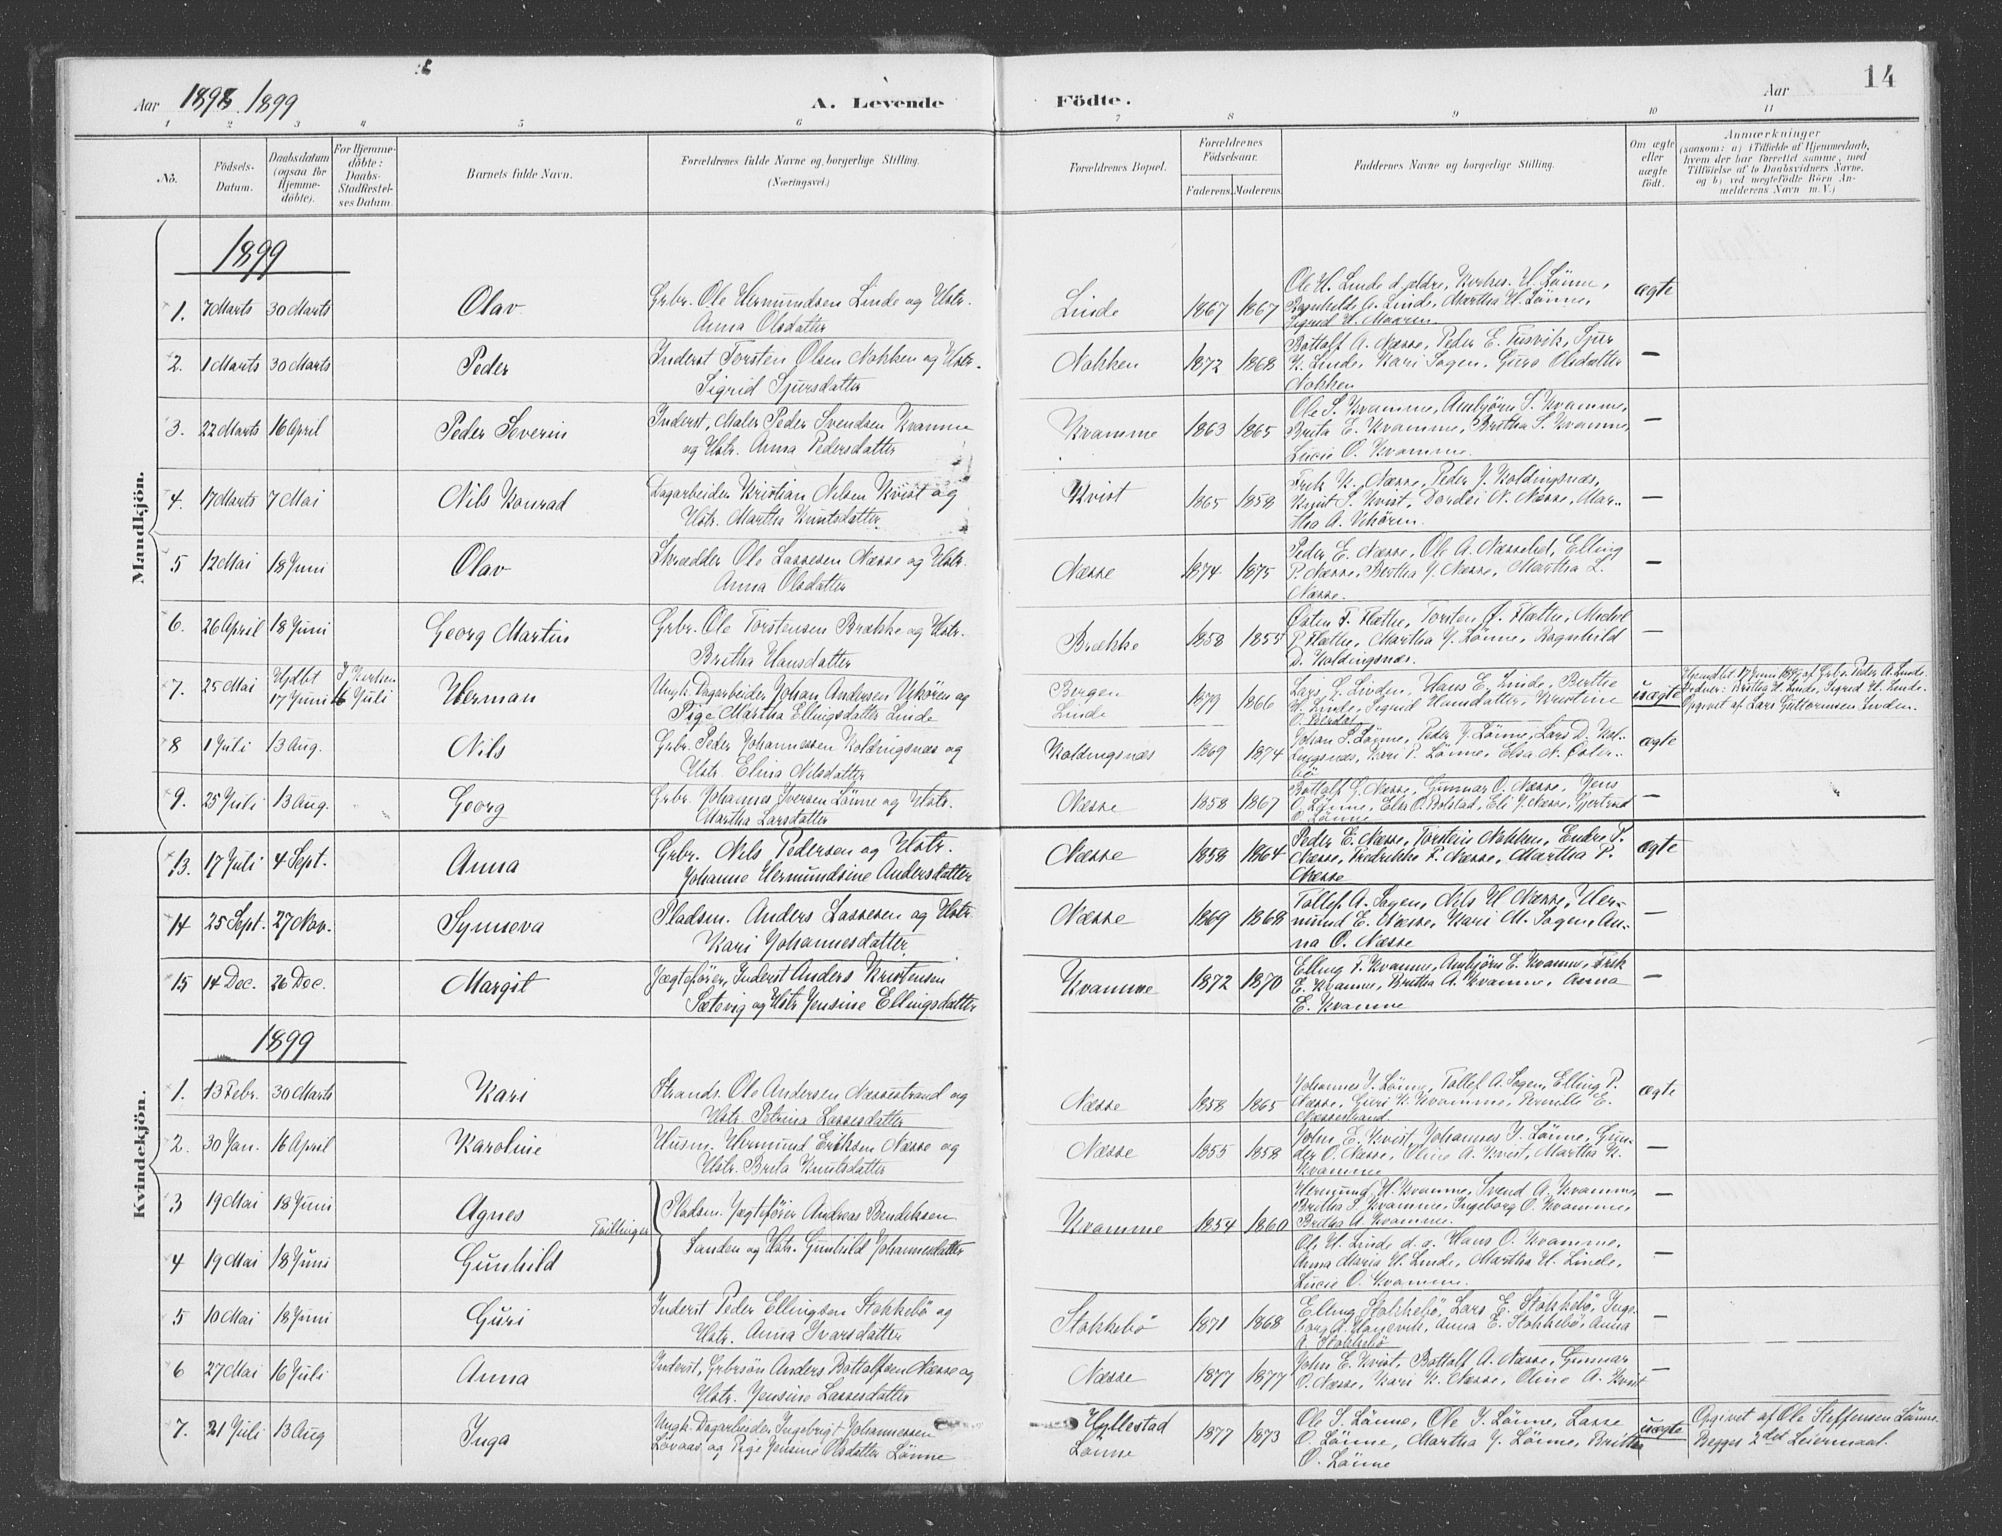 14
Aar 1898. 1899 A. Levende Födte. Aar
1 2 3 4 5 6 7 8 9 10 11
No.
Födsels-Datum.
Daabsdatum (ogsaa for Hjemme-döbte).
For Hjemme-döbte: Daabs-Stadfæstel-ses Datum.
Barnets fulde Navn.
Forældrenes fulde Navne og borgerlige Stilling.
(Næringsvei.)
Forældrenes Bopæl.
Forældrenes Födselsaar.
Faderens. Moderens.
Faddernes Navne og borgerlige Stilling.
Om ægte eller uægte födt.
Anmærkninger
(saasom: a) i Tilfælde af Hjemmedaab, hvem der har forrettet samme, med Tilföielse af to Daabsvidners Navne, og b) ved uægtefödte Börn An-melderens Navn m. V.)
Mandkjön.
1899
1. 7 Marts 30 Marts Olav Grbr. Ole Hermundsen Linde og Hstr. Anna Olsdatter Linde 1867 1867 Ole H. Linde d. eldre, H. Lönne, Ragnhilde O. Linde, Martha H. Lönne, Sigrid H. Maaren. ægte
2. 1 Marts 30 Marts Peder Inderst Torsten Olsen Nokken og Hstr. Sigrid Sjursdatter Nokken 1872 1868 Bottolf A. Næsse, Peder E. Tusvik, Sjur K. Linde, Kari Sogen, Guro Olsdatter Nokken —
3. 22 Marts 16 April Peder Severin Inderst, Maler Peder Svendsen Kvamme og Hstr. Anna Pedersdatter Kvamme 1863 1865 Ole S. Kvamme, Ambjörn S. Kvamme, Brita E. Kvamme, Britha S. Kvamme, Lucie O. Kvamme. —
4. 17 Marts 7 Mai Nils Konrad Dagarbeider Kristian Nilsen Kvist og Hstr. Martha Knutsdatter Kvist 1865 1858 Erik K. Næsse, Peder J. Koldingsnæs, Knut S. Kvist, Dordei N. Næsse, Martha A. —
5 12 Mai 18 Juni Olav Skrædder Ole Lassesen Næsse og Hstr. Anna Olsdatter Næsse 1874 1875 Peder E. Næsse, Ole A. Næssebö, Elling P. Næsse, Bertha J. Næsse, Martha L. Næsse. —
6. 26 April 18 Juni Georg Martin Grbr. Ole Torstensen Brække og Hstr. Britha Hansdatter Brække 1858 1855 Östen T. Flatte, Torsten Ö. Flatte, Michel P. Flatte, Martha J. Lönne, Ragnhild D. Koldingsnæs. —
7. 25 Mai Hjdbt 17 Juni I Kirken 16 Juli Herman Ungk. Dagarbeider Johan Andersen Ukören og Pige Martha Ellingsdatter Linde Bergen Linde 1879 1866 Lars G. Linden, Hans E. Linde, Berthe H. Linde, Sigrid Hansdatter, Kristine O. uægte Hjemdbt 17 Juni 1899 af Grbr. Peder A. Linde. H. Linde, Sigrid H. Linde. Opgivet af Lars Guttormsen Linden.
8 1 Juli 13 Aug. Nils Grbr. Peder Johannessen Koldingsnæs og Hstr. Elina Nilsdatter Koldingsnæs 1869 1874 Johan S. Lönne, Peder J. Lönne, Lars D. Koldingsnæs, Kari P. Lönne, Elsa N. Österbö ægte
9. 25 Juli 13 Aug. Georg Grbr. Johannes Iversen Lönne og Hstr. Martha Larsdatter Næsse 1858 1867 Bottolf G. Næsse, Gunnar O. Næsse, Jens O. Lönne, Else O. Bolstad, Eli J. Næsse, Gjertrud O. Lönne —
Kvindekjön.
13. 17 Juli 4 Sept. Anna Grbr. Nils Pedersen og Hstr. Johanne Hermundsine Andersdatter Næsse 1858 1864 Peder E. Næsse, Torstein Nokken, Endre S. Næsse, Fredrikke F. Næsse, Martha P. Næsse ægte
14 25 Sept. 27 Nov. Synneva Pladsm. Anders Lassesen og Hstr. Kari Johannesdatter Næsse 1869 1868 Tollef A. Sogen, Nils H Næsse, Hermund E. Næsse, Kari M. Sogen, Anna O. Næsse —
15 14 Dec. 26 Dec. Margit Jægtefører, Inderst Anders Kristensen Sætevig og Hstr Jensine Ellingsdatter Kvamme 1872 1870 Elling T. Kvamme, Ambjörn E. Kvamme, Erik E. Kvamme, Britha A. Kvamme, Anna E. Kvamme —
1899
1. 13 Febr. 30 Marts Kari Strands. Ole Andersen Næssestrand og Hstr. Petrina Lassesdatter Næsse 1858 1865 Johannes I. Lönne, Tollef A. Sogen, Elling P. Næsse, Guri K. Kvamme, Pernille E. Næssestrand. ægte
2. 30 Jan. 16 April Karoline Husm. Hermund Eriksen Næsse og Hstr. Brita Knutsdatter Næsse 1855 1858 John E. Kvist, Johannes I. Lönne, Gunder O. Næsse, Oline A. Kvist, Martha K. Kvamme —
3 19 Mai 18 Juni Agnes Tvillinger Pladsm. Jægtefører Andreas Bendiksen Kvamme 1854 1860 Hermund H. Kvamme, Svend A. Kvamme, Britha S. Kvamme, Ingeborg O. Kvamme, Britha A. Kvamme. —
4 19 Mai 18 Juni Gunhild Sanden og Hstr. Gunhild Johannesdatter Ole H. Linde d. æ. Hans O. Kvamme, Anna Maria H. Linde, Martha H. Linde, Lucie O. Kvamme. —
5 10 Mai 18 Juni Guri Inderst Peder Ellingsen Stokkebö og Hstr. Anna Ivarsdatter Stokkebö 1871 1868 Elling Stokkebö, Lars E. Stokkebö, Ingeborg A. Anna E. Stokkebö, Anna A. Stokkebö —
6 27 Mai 16 Juli Anna Inderst, Grbrsön Anders Bottolfsen Næsse og Hstr. Jensine Lassesdatter Næsse 1877 1877 John E. Kvist, Bottolf A. Næsse, Gunnar O. Næsse, Kari K. Næsse, Oline A. Kvist —
7. 21 Juli 13 Aug Inga Ungk. Dagarbeider Ingebrigt Johannessen Lövaas og Pige Jensine Olsdatter Lönne Hyllestad Lönne 1877 1873 Ole S. Lönne, Ole I. Lönne, Lasse O. Lönne, Martha J. Lönne, Britha O. Lönne uægte Opgivet af Ole Steffensen Lönne. Begges 2det Leiermaal.